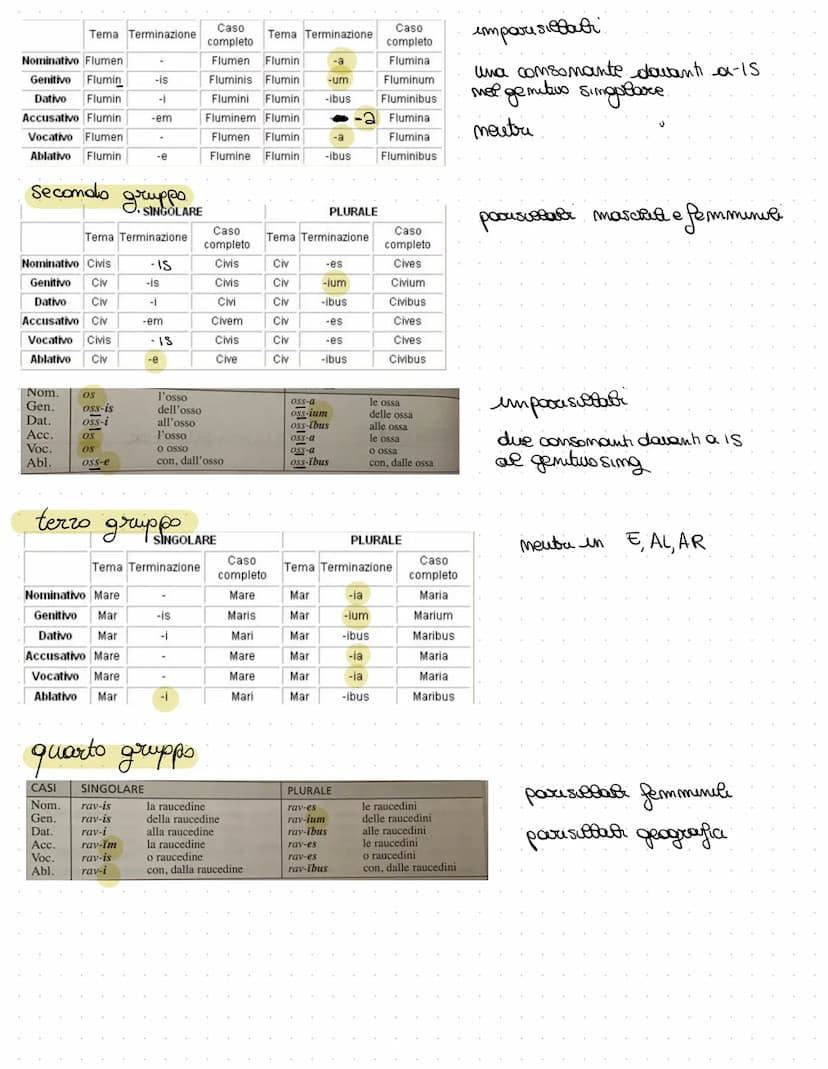 Tema Terminazione Caso completo Tema Terminazione Caso completo
Nominativo Flumen - Flumen Flumin -a Flumina
Genitivo Flumin -is Fluminis Flumin -um Fluminum
Dativo Flumin -i Flumini Flumin -ibus Fluminibus
Accusativo Flumin -em Fluminem Flumin -a Flumina
Vocativo Flumen - Flumen Flumin -a Flumina
Ablativo Flumin -e Flumine Flumin -ibus Fluminibus
imparisillabi
una consonante davanti a -IS
nel genitivo singolare
neutri
secondo gruppo
SINGOLARE PLURALE
Tema Terminazione Caso completo Tema Terminazione Caso completo
Nominativo Civis -IS Civis Civ -es Cives
Genitivo Civ -is Civis Civ -ium Civium
Dativo Civ -i Civi Civ -ibus Civibus
Accusativo Civ -em Civem Civ -es Cives
Vocativo Civis -IS Civis Civ -es Cives
Ablativo Civ -e Cive Civ -ibus Civibus
parisillabi maschili e femminili
Nom. os l'osso oss-a le ossa
Gen. oss-is dell'osso oss-ium delle ossa
Dat. oss-i all'osso oss-ĭbus alle ossa
Acc. os l'osso oss-a le ossa
Voc. os o osso oss-a o ossa
Abl. oss-e con, dall'osso oss-ĭbus con, dalle ossa
imparisillabi
due consonanti davanti a IS
al genitivo sing
terzo gruppo
SINGOLARE PLURALE
Tema Terminazione Caso completo Tema Terminazione Caso completo
Nominativo Mare - Mare Mar -ia Maria
Genitivo Mar -is Maris Mar -ium Marium
Dativo Mar -i Mari Mar -ibus Maribus
Accusativo Mare - Mare Mar -ia Maria
Vocativo Mare - Mare Mar -ia Maria
Ablativo Mar -i Mari Mar -ibus Maribus
neutri in E, AL, AR
quarto gruppo
CASI SINGOLARE PLURALE
Nom. rav-is la raucedine rav-es le raucedini
Gen. rav-is della raucedine rav-ium delle raucedini
Dat. rav-i alla raucedine rav-ĭbus alle raucedini
Acc. rav-ĭm la raucedine rav-es le raucedini
Voc. rav-is o raucedine rav-es o raucedini
Abl. rav-i con, dalla raucedine rav-ĭbus con, dalle raucedini
parisillabi femminili
parisillabi geografia